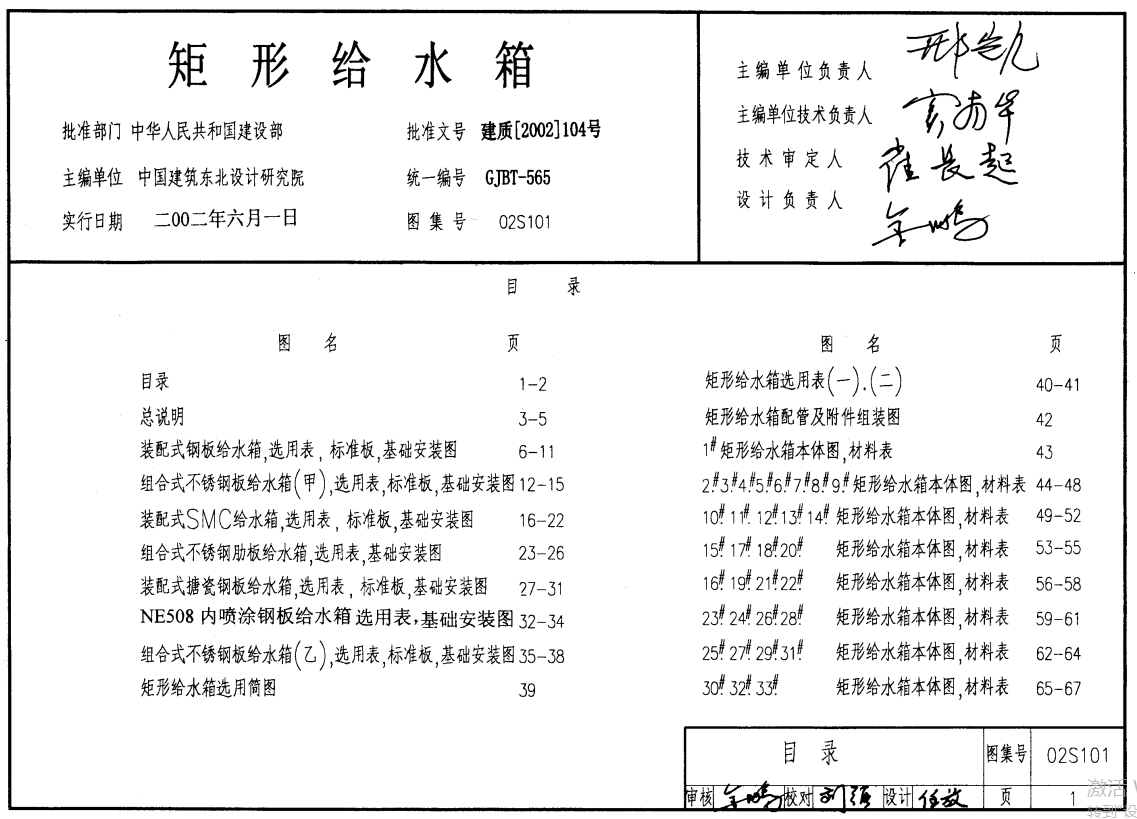 矩形给水箱
批准部门 中华人民共和国建设部 批准文号 建质[2002]104号
主编单位 中国建筑东北设计研究院 统一编号 GJBT-565
实行日期 二00二年六月一日 图集号 02S101
主编单位负责人
主编单位技术负责人
技术审定人 崔长起
设计负责人
目 录
图 名 页
目录 1-2
总说明 3-5
装配式钢板给水箱,选用表,标准板,基础安装图 6-11
组合式不锈钢板给水箱(甲),选用表,标准板,基础安装图 12-15
装配式SMC给水箱,选用表,标准板,基础安装图 16-22
组合式不锈钢肋板给水箱,选用表,基础安装图 23-26
装配式搪瓷钢板给水箱,选用表,标准板,基础安装图 27-31
NE508内喷涂钢板给水箱 选用表,基础安装图 32-34
组合式不锈钢板给水箱(乙),选用表,标准板,基础安装图 35-38
矩形给水箱选用简图 39
图 名 页
矩形给水箱选用表(一).(二) 40-41
矩形给水箱配管及附件组装图 42
1#矩形给水箱本体图,材料表 43
2#.3#.4#.5#.6#.7#.8#.9#.矩形给水箱本体图,材料表 44-48
10#.11#.12#.13#.14#.矩形给水箱本体图,材料表 49-52
15#.17#.18#.20#. 矩形给水箱本体图,材料表 53-55
16#.19#.21#.22#. 矩形给水箱本体图,材料表 56-58
23#.24#.26#.28#. 矩形给水箱本体图,材料表 59-61
25#.27#.29#.31#. 矩形给水箱本体图,材料表 62-64
30#.32#.33#. 矩形给水箱本体图,材料表 65-67
目 录 图集号 02S101
审核 校对 设计 任放 页 1
激活
转到"设